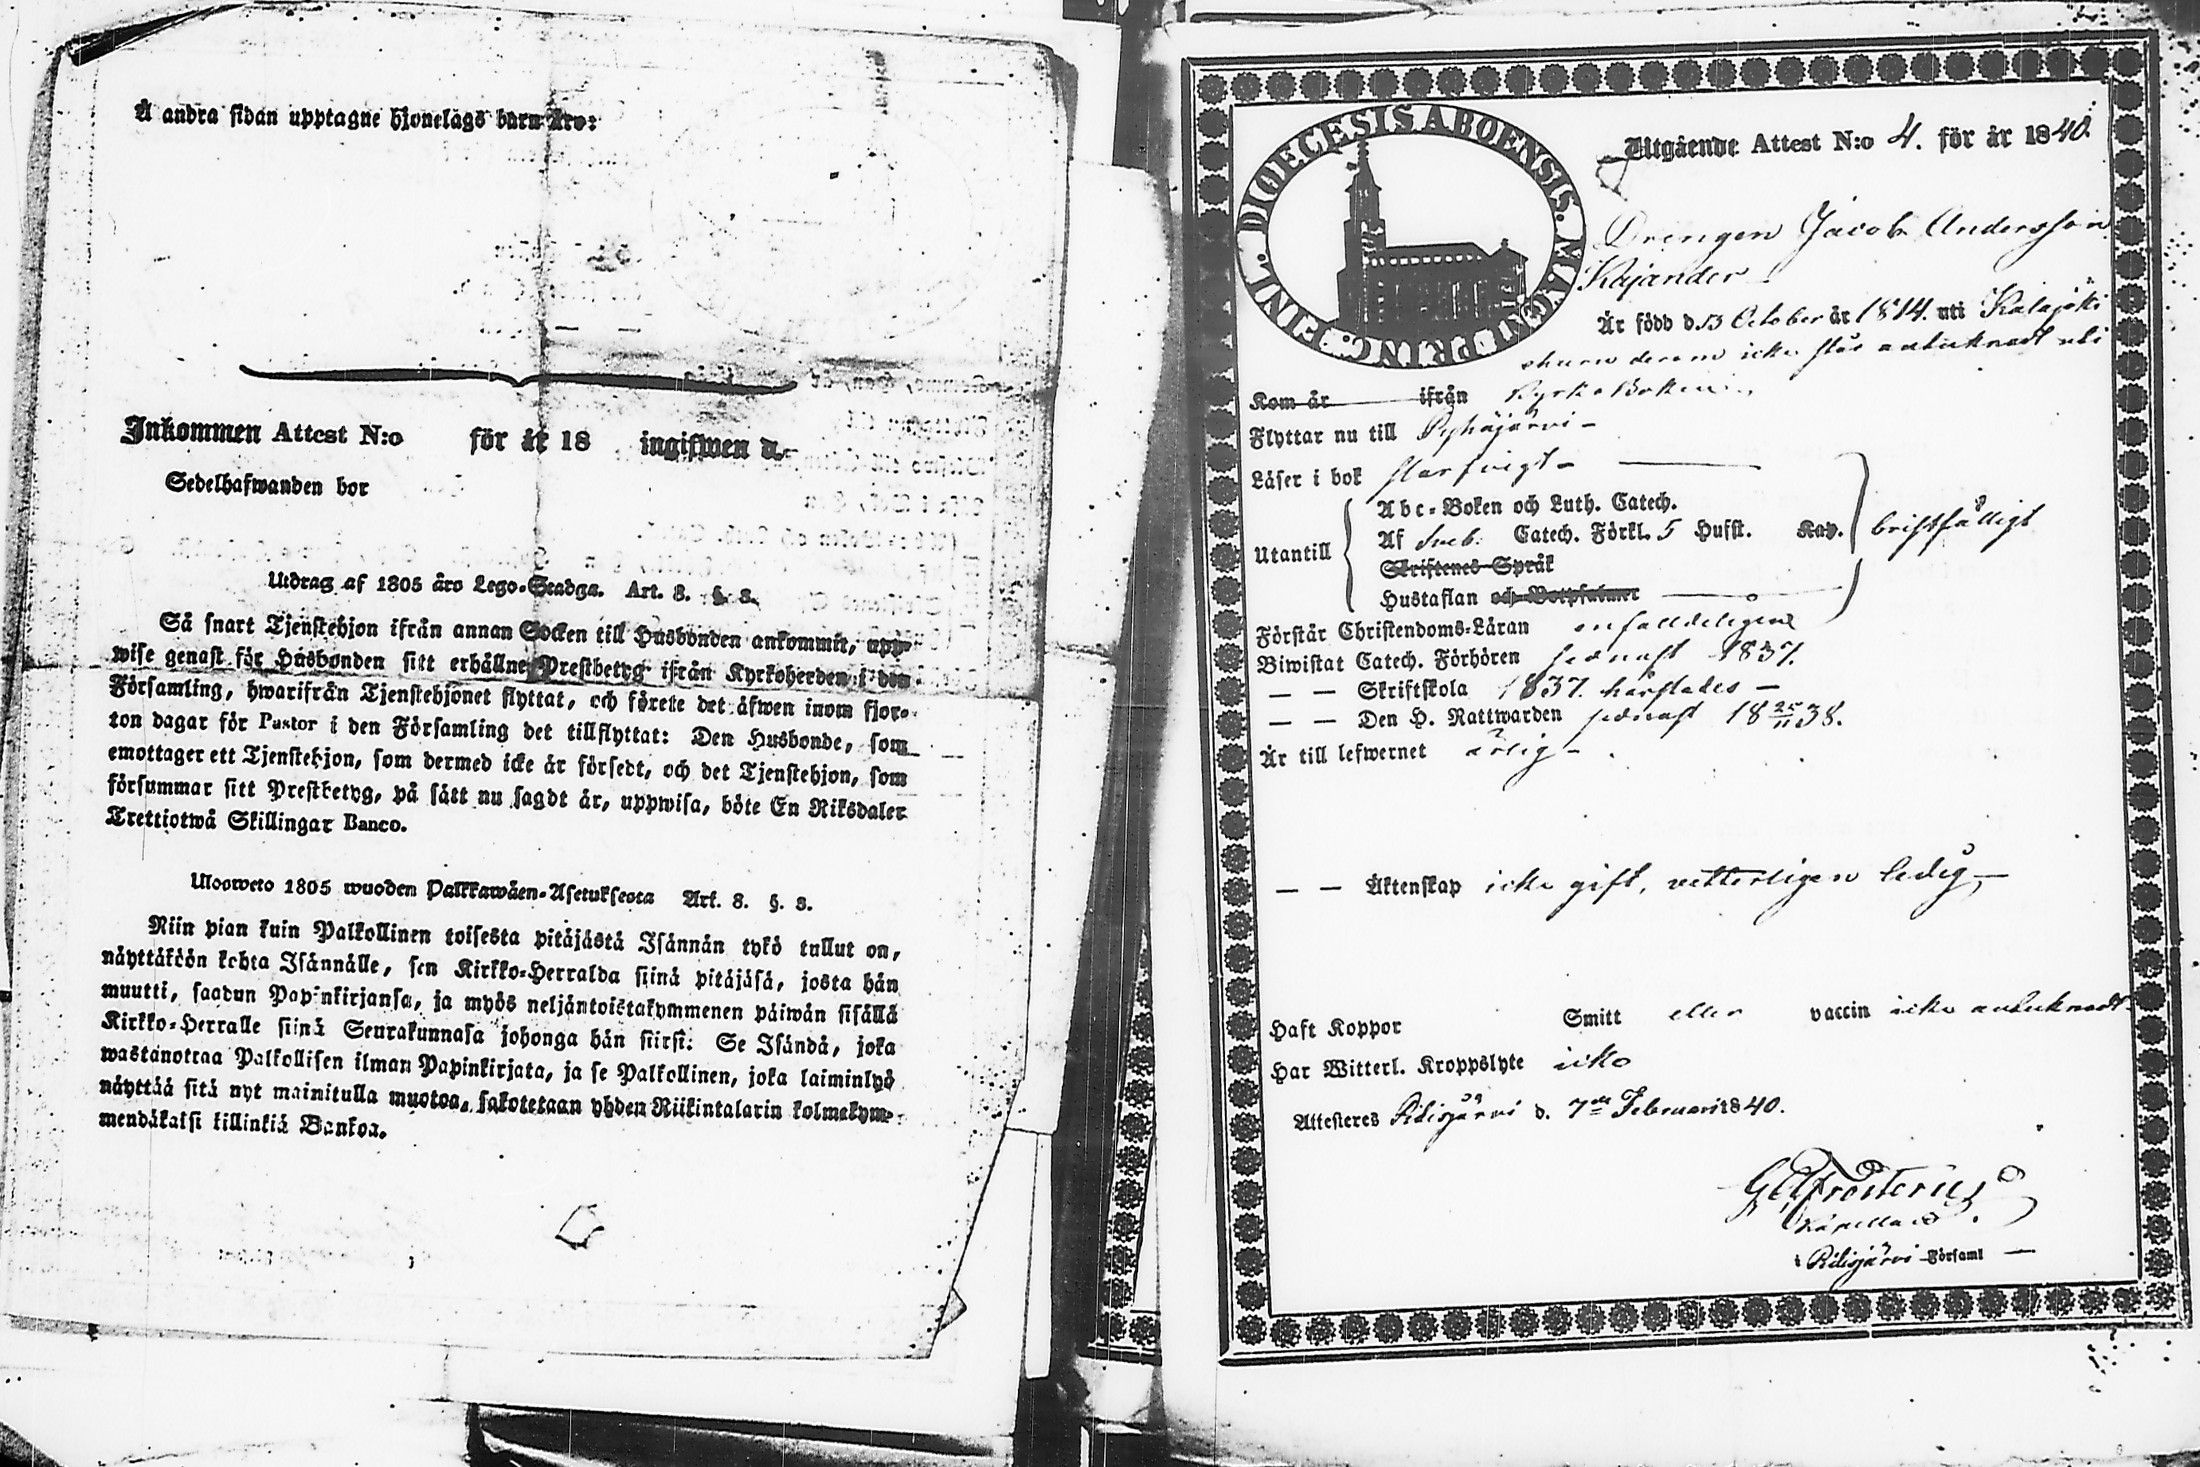 Å andra sidan upptagne hjonelags barn äro:
Inkommen Attest N:o för år 18 ingifwen d.
Sedelhafwanden bor
Utdrag af 1805 års Lego-Stadga. Art. 8. §. 8.
Så snart Tjenstehjon ifrån annan Socken till Husbonden ankommit, upp-
wise genast för Husbonden sitt erhållne Prestbetyg ifrån Kyrkoherden i den
Församling, hwarifrån Tjenstehjonet flyttat, och förete det äfwen inom fjor-
ton dagar för Pastor i den Församling det tillflyttat: Den Husbonde, som
emottager ett Tjenstehjon, som dermed icke är försedt, och det Tjenstehjon, som
försummar sitt Prestbetyg, på sätt nu sagdt är, uppwisa, böte En Riksdaler
Trettiotwå Skillingar Banco.
Ulosweto 1805 wuoden Palkkawäen-Asetuksesta Art. 8. §. 8.
Niin pian kuin Palkollinen toisesta pitäjästä Isännän tykö tullut on,
näyttäköön kohta Isännälle, sen Kirkko-Herralda siinä pitäjäsä, josta hän
muutti, saadun Papinkirjansa, ja myös neljäntoistakymmenen päiwän sisällä
Kirkko-Herralle siinä Seurakunnasa johonga hän siirsi: Se Isändä, joka
wastanottaa Palkollisen ilman Papinkirjata, ja se Palkollinen, joka laiminlyö
näyttää sitä nyt mainitulla muotoa, sakotetaan yhden Riikintalarin kolmekym-
mendäkaksi killinkiä Bankoa.
DIOECESIS ABOENSIS. MAGNI PRINC. FINL.
Utgående Attest N:o 4. för år 1840.
Drengen Jacob Andersson
Kajander
Är född d. 13 October år 1814. uti Kalajoki
ehuru derom icke står antecknadt uti
Kom år ifrån KyrkoBoken
Flyttar nu till Pyhäjärvi -
Läser i bok
Abc-Boken och Luth. Catech.
Utantill Af Sveb. Catech. Förkl. 5 Hufst. Kap. bristfälligt
Skriftenes Språk
Hustaflan och Botpsalmer
Förstår Christendoms-Läran enfalldeligen
Biwistat Catech. Förhören sednast 1837.
— — Skriftskola 1837.
— — Den H. Nattwarden sednast 18 25/11 38.
Är till lefwernet ärlig -
— — Äktenskap icke gift, vetterligen ledig, —
Haft Koppor Smitt eller vaccin icke antecknadt
Har Witterl. Kroppslyte icke
Attesteres Pidisjärvi d. 7de Februarii 1840.
Frosterus
Kapellan
i Pidisjärvi Församl —